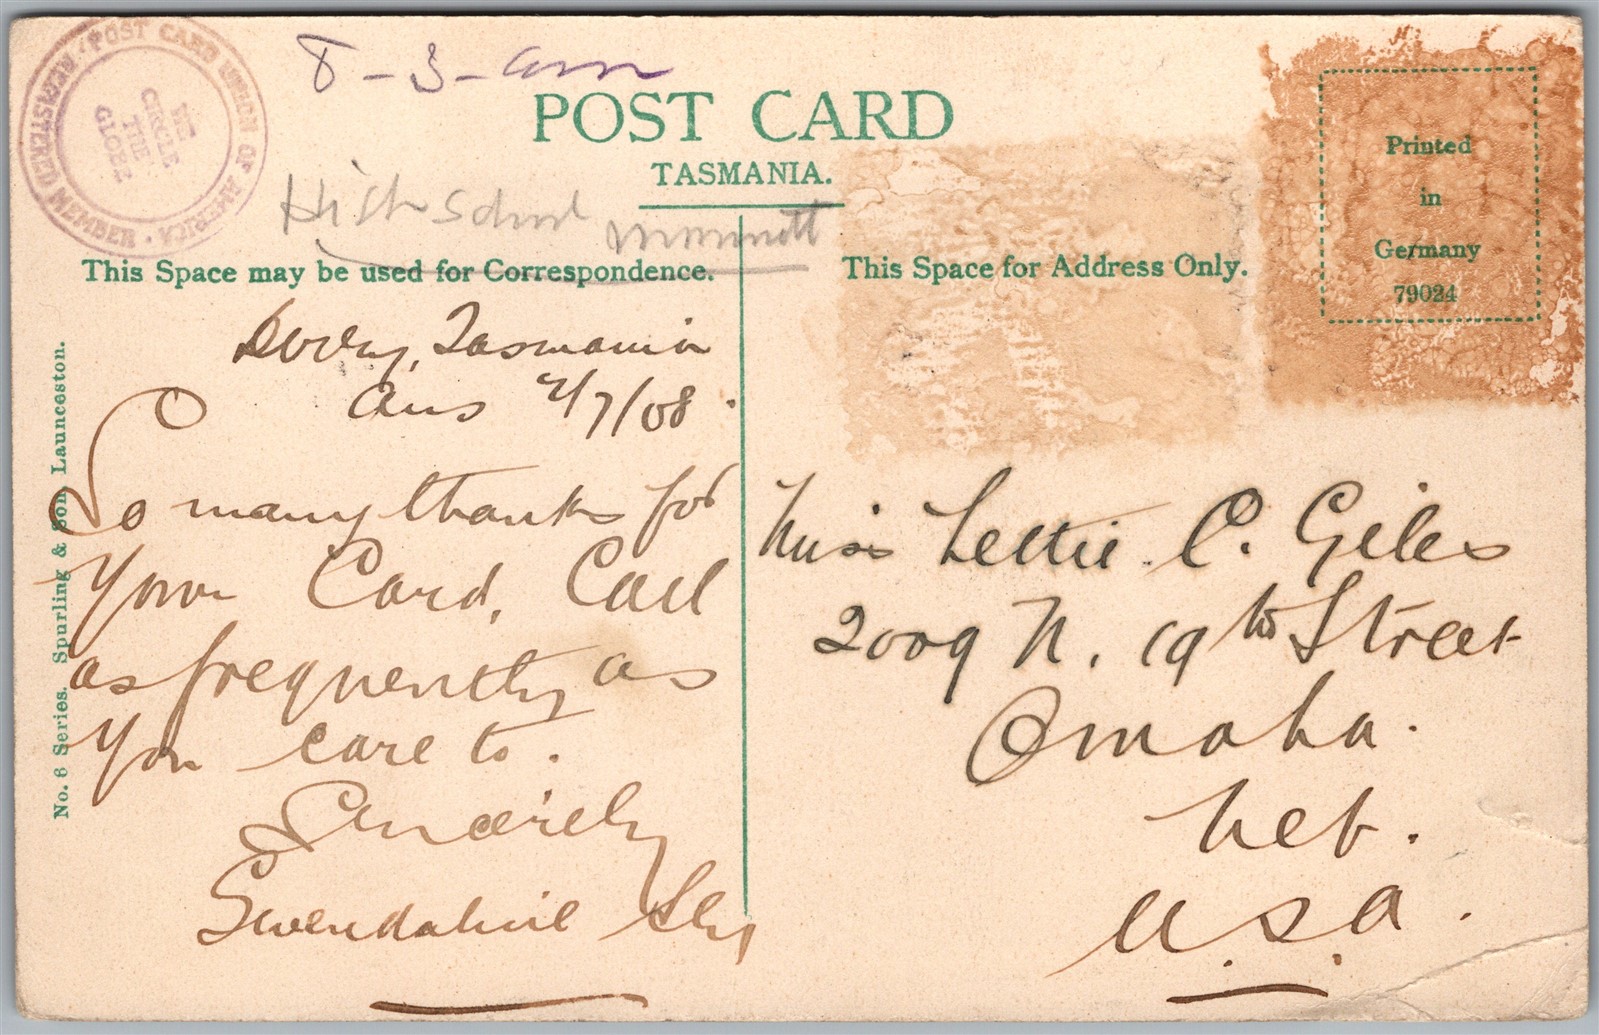 REGISTERED MEMBER · POST CARD UNION OF AMERICA ·
WE
CIRCLE
THE
GLOBE
8-3-
POST CARD
TASMANIA.
High School
This Space may be used for Correspondence.
This Space for Address Only.
Printed
in
Germany
79024
No. 6 Series. Spurling & Son, Launceston.
Tasmania
Aus 2/7/08.
So many thanks for
Your Card, Card
as frequently as
You care to.
Sincerely
Gwendoline Sly
Miss Lettie C. Giles
2009 N. 19th Street
Omaha.
Neb.
U.S.A.